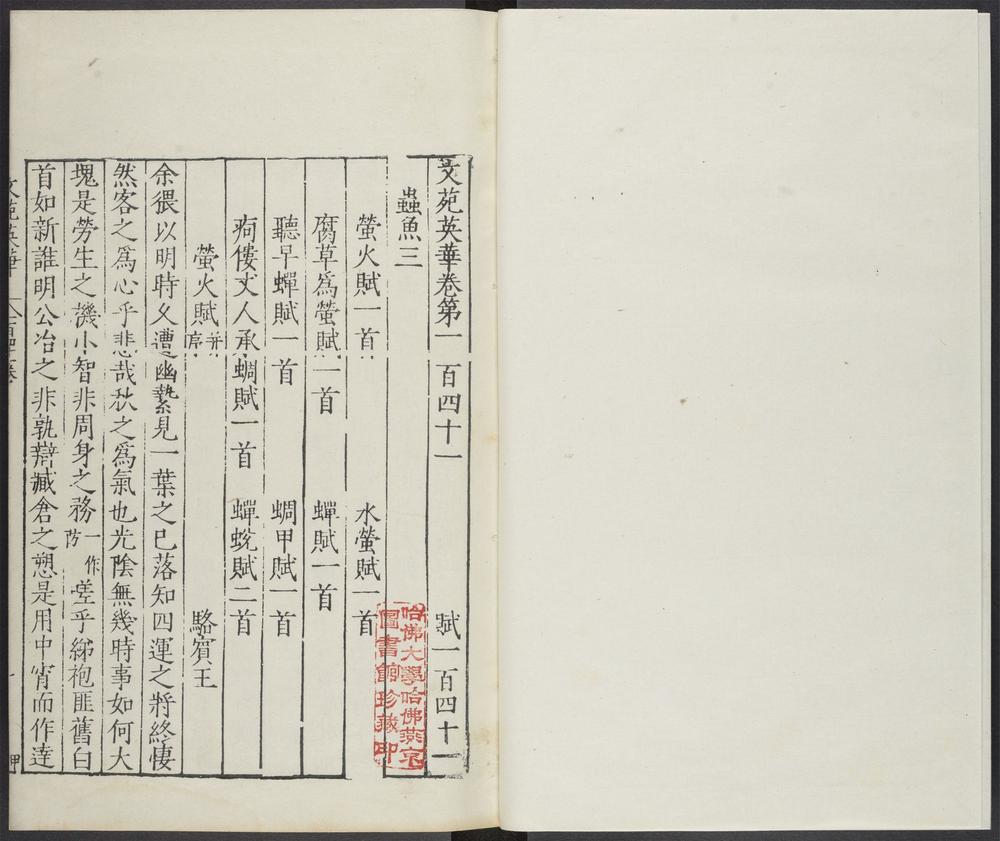 文苑英華卷第一百四十一 賦一百四十一
蟲魚三
螢火賦一首 水螢賦一首
腐草爲螢賦一首 蟬賦一首
聽早蟬賦一首 蜩甲賦一首
痀僂丈人承蜩賦一首 蟬蛻賦二首
螢火賦并序 駱賔王
余猥以明時久遭幽縶見一葉之已落知四運之將終悽
然客之爲心乎悲哉秋之爲氣也光陰無幾時事如何大
塊是勞生之機小智非周身之務一作防嗟乎綈袍匪舊白
首如新誰明公冶之非孰辯臧倉之愬是用中宵而作達
文苑英華
哈佛大學哈佛燕京
圖書館珍藏印